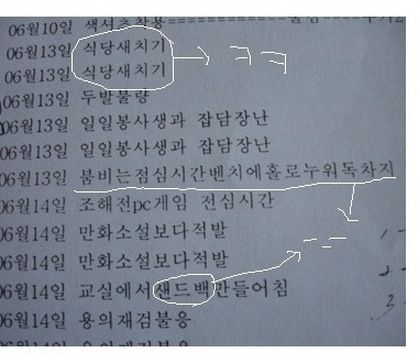 06월10일
06월13일 식당새치기
06월13일 식당새치기 → ㅋㅋ
06월13일 두발불량
06월13일 일일봉사생과 잡담장난
06월13일 일일봉사생과 잡담장난
06월13일 붐비는점심시간벤치에홀로누워독차지
06월14일 조해전pc게임 전심시간
06월14일 만화소설보다적발
06월14일 만화소설보다적발
06월14일 교실에서샌드백만들어침
06월14일 용의재검불응